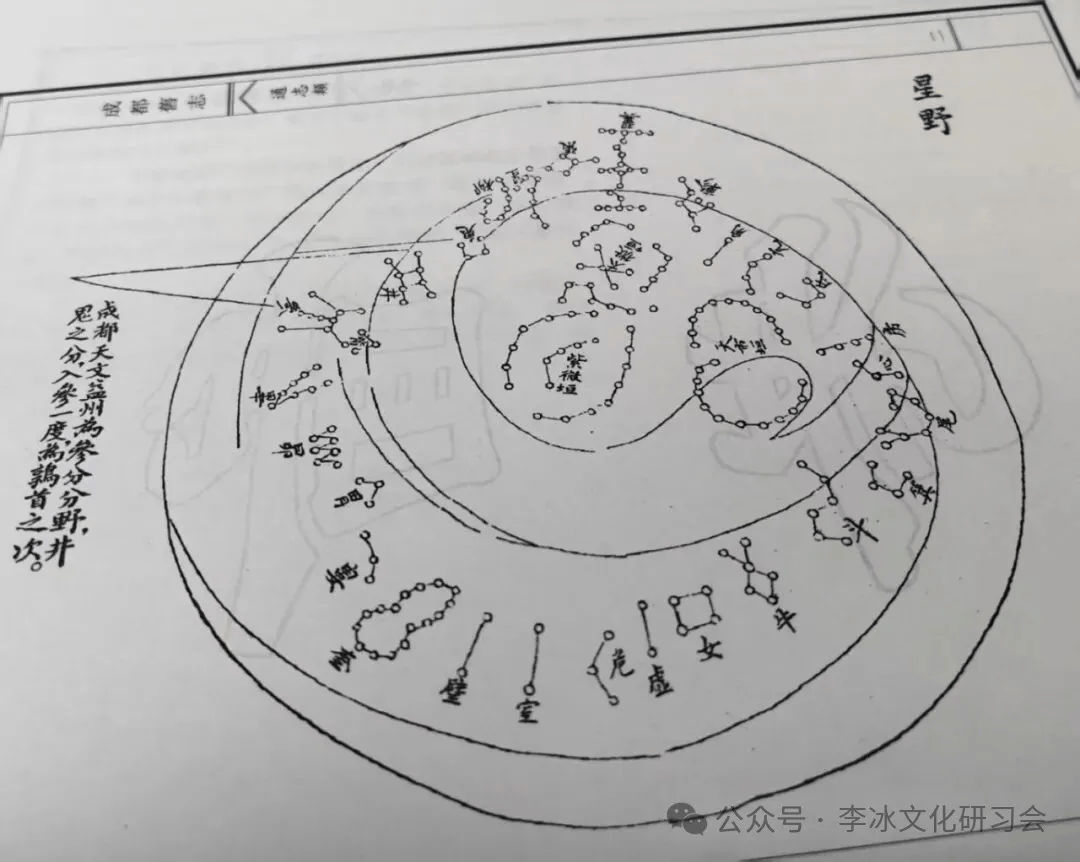 成都舊志
通志類
二
星野
成都天文益州為參分分野，井
鬼之分，入參一度，為鶉首之次。
軫
張
翼
角
亢
氐
房
心
尾
箕
斗
牛
女
虛
危
室
壁
奎
婁
胃
昴
畢
觜
參
井
鬼
柳
太微垣
紫微垣
天市垣
公众号·李冰文化研习会